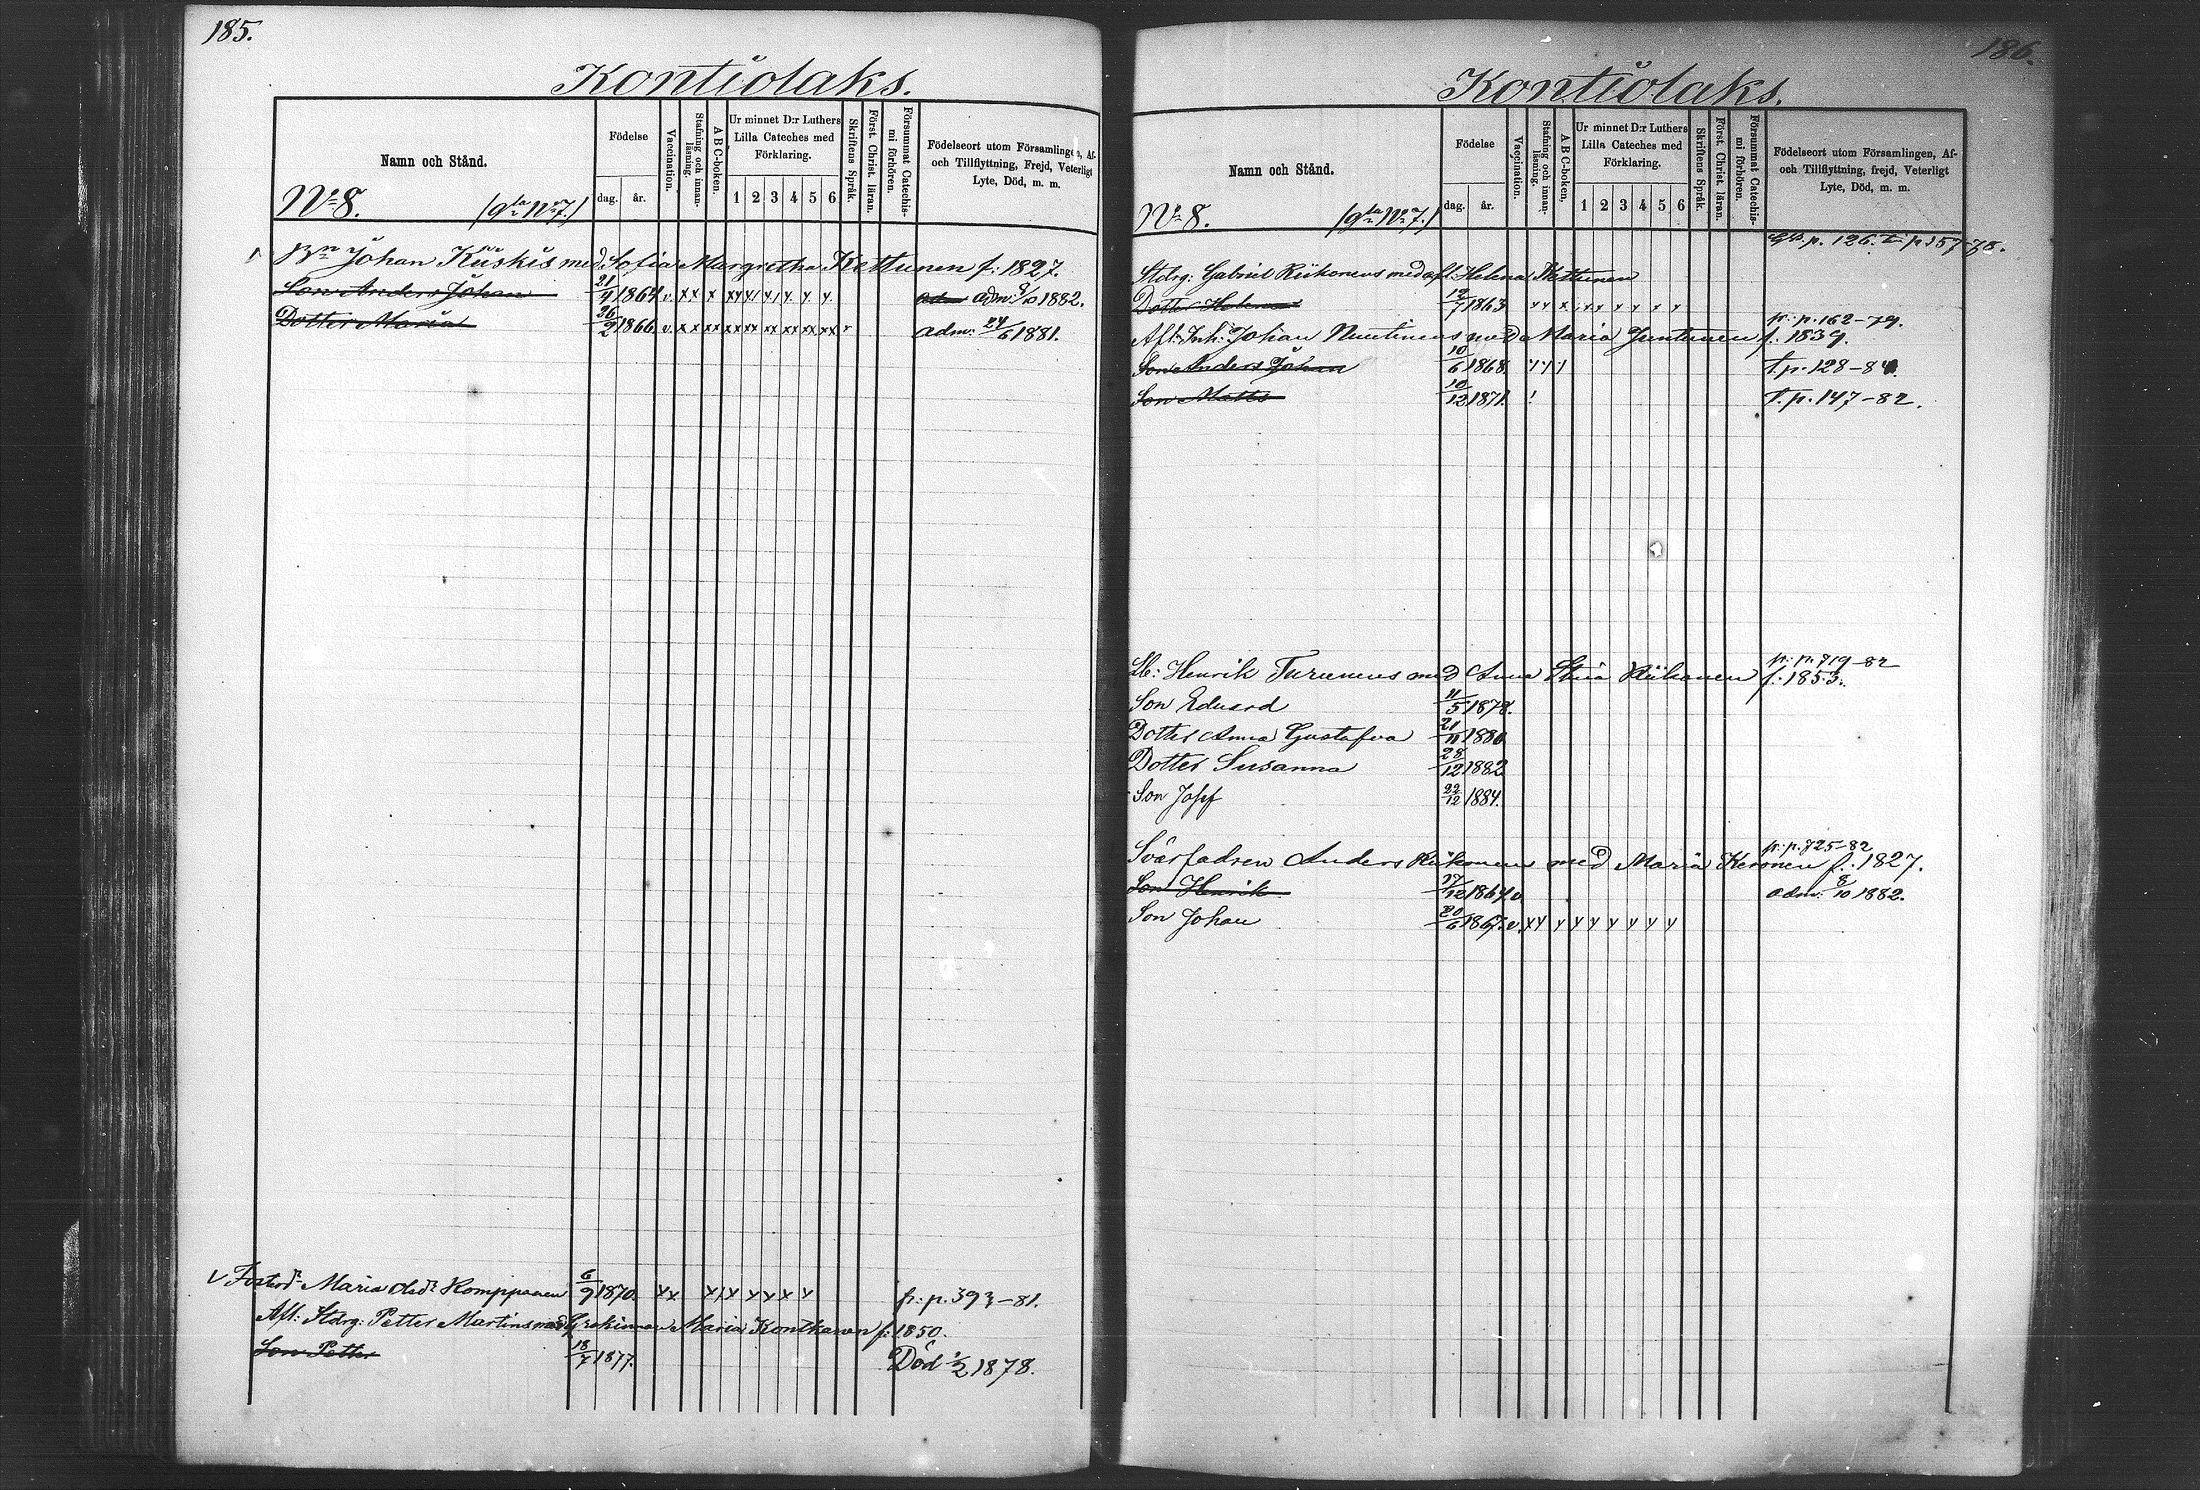 185.
Kontiolaks.
Namn och Stånd.
Födelse
dag. år.
Vaccination.
Stafning och innan-läsning.
A B C-boken.
Ur minnet D:r Luthers Lilla Cateches med Förklaring.
1 2 3 4 5 6
Skriftens Språk.
Först. Christ. läran.
Försummat Catechis-mi förhören.
Födelseort utom Församlingen, Af-
och Tillflyttning, Frejd, Veterligt
Lyte, Död, m. m.
No 8. /gla No 7./
Bn Johan Kuskis med Sofia Margretha Kettunen f: 1827.
Son Anders Johan 21/4 1864 v. xx x adm: 8/10 1882.
Dotter Maria 26/2 1866 v. x x xx adm: 24/6 1881.
v Fosterd: Maria Komppanen 6/9 1870. fr: p. 393-81.
Afl: Stdrg: Petter Martins med Maria Kontkanen f: 1850.
Son Petter 18/7 1877. Död 1/2 1878.
186.
Kontiolaks.
Namn och Stånd.
Födelse
dag. år.
Vaccination.
Stafning och innan-läsning.
A B C-boken,
Ur minnet D:r Luthers Lilla Cateches med Förklaring.
1 2 3 4 5 6
Skriftens Språk.
Först. Christ. läran.
Försummat Catechis-mi förhören.
Födelseort utom Församlingen, Af-
och Tillflyttning, frejd, Veterligt
Lyte, Död, m. m.
No 8. /gla No 7./
p. 126. p 157-78.
Stdrg: Gabriel Riikonens med afl: Helena Kettunen
Dotter Helena 12/7 1863
fr: p. 162-79.
Afl: Inh: Johan Nuutinens med Maria Juntunen f. 1839.
Son Anders Johan 10/6 1868. T. p. 128-84.
Son Matts 10/12 1871. T. p. 147-82.
fr: p. 719-82
Lb: Henrik Turunens med Anna Stina Riikonen f. 1853.
Son Eduard 11/5 1878.
Dotter Anna Gustafva 21/11 1880
Dotter Susanna 28/12 1882
Son Josef 22/12 1884.
fr: p. 725-82
Svärfadren Anders Riikonens med Maria Keronen f. 1827.
Son Henrik 17/12 1864 v. adm: 8/10 1882.
Son Johan 20/6 1867. v. xy y y y y y y y